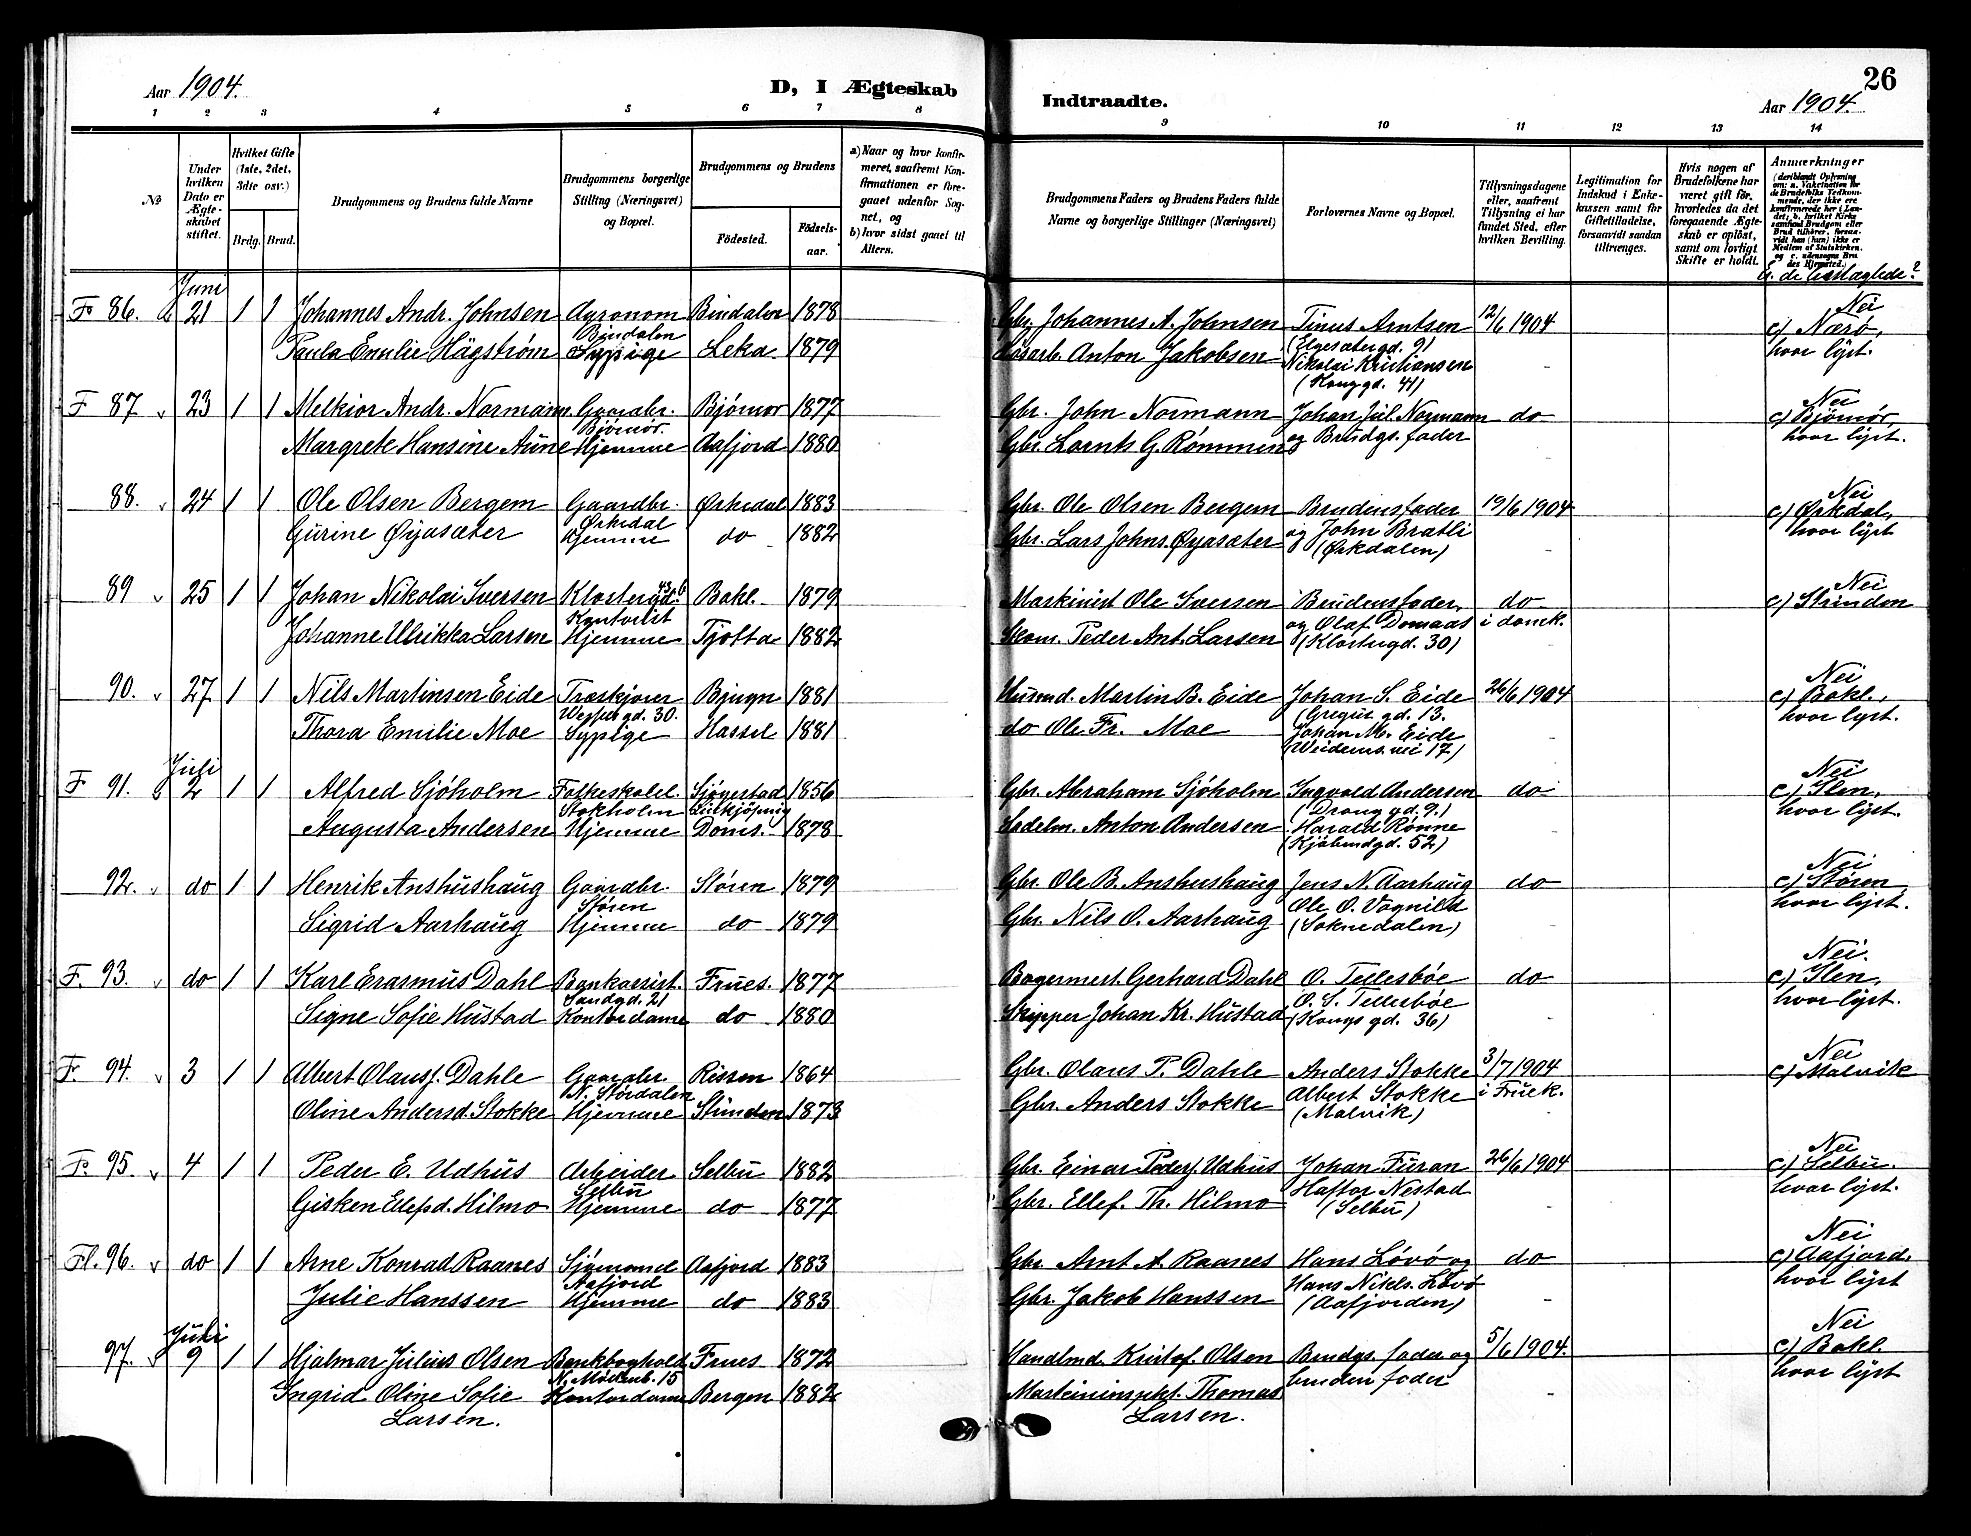 Aar 1904.
D, I Ægteskab
1 2 3 4 5 6 7 8
№
Under hvilken Dato er Ægteskabet stiftet.
Hvilket Gifte (1ste, 2det, 3die osv.)
Brdg. Brud.
Brudgommens og Brudens fulde Navne
Brudgommens borgerlige Stilling (Næringsvei) og Bopæl.
Brudgommens og Brudens
Födested. Födselsaar.
a) Naar og hvor konfirmeret, saafremt Konfirmationen er foregaaet udenfor Sognet, og
b) hvor sidst gaaet til Alters.
Juni
F. 86. 21 1 1 Johannes Andr. Johnsen Agronom Bindalen 1878
Bindalen
Paula Emilie Hägstrøm Sypige Leka 1879
F 87 23 1 1 Melkior Andr. Normann Gaardbr. Bjömor 1877
Bjömor.
Margrete Hansine Aune Hjemme Aafjord 1880
88. 24 1 1 Ole Olsen Bergem Gaardbr. Ørkedal 1883
Ørkedal
Gurine Øyasæter Hjemme do 1882
89 25 1 1 Johan Nikolai Iversen Klostergd. 43 b Bakl. 1879
Kontorist
Johanne Ulrikka Larsen Hjemme Tjøtta 1882
90. 27 1 1 Nils Martinsen Eide Træskjærer Bjugn 1881
gd. 30.
Thora Emilie Moe Sypige Hassel 1881
Juli
F 91. 2 1 1 Alfred Sjöholm Folkeskolel. Sjögestad 1856
Stokholm Linkjöping
Augusta Andersen Hjemme Doms. 1878
92. do 1 1 Henrik Anshushaug Gaardbr. Stören 1879
Stören
Sigrid Aarhaug Hjemme do 1879
F. 93. do 1 1 Karl Erasmus Dahl Bankassist. Frues. 1877
Sandgd. 21
Signe Sofie Hustad Kontordame do 1880
F. 94. 3 1 1 Albert Olausf. Dahle Gaardbr. Rissen 1864
N. Stördalen
Oline Andersd. Stokke Hjemme Strinden 1873
F. 95 4 1 1 Peder E. Udhus Arbeider Selbu 1882
Selbu
Gisken Elefsd. Hilmo Hjemme do 1877
Fl. 96. do 1 1 Arne Konrad Raanes Sjömand Aafjord 1883
Aafjord
Julie Hanssen Hjemme do 1883
Juli
97. 9 1 1 Hjalmar Julius Olsen Bankboghold. Frues 1872
N. Möllenb. 15
Ingrid Oline Sofie Kontordame Bergen 1882
Larsen.
26
Indtraadte.
Aar 1904.
9 10 11 12 13 14
Brudgommens Faders og Brudens Faders fulde Navne og borgerlige Stillinger (Næringsvei)
Forlovernes Navne og Bopæl.
Tillysningsdagene eller, saafremt Tillysning ei har fundet Sted, efter hvilken Bevilling.
Legitimation for Indskud i Enkekassen samt for Giftetilladelse, forsaavidt saadan tiltrænges.
Hvis nogen af Brudefolkene har været gift för, hvorledes da det foregaaende Ægteskab er oplöst, samt om lovligt Skifte er holdt.
Anmærkninger
(deriblandt Oplysning om: a. Vaksination for de Brudefolks Vedkommende, der ikke ere konfirmerede her i Landet; b. hvilket Kirkesamfund Brudgom eller Brud tilhører, forsaavidt han (hun) ikke er Medlem af Statskirken, og c. udensogns Brudes Hjemsted.)
Er de beslægtede?
Nei
Gbr. Johannes A. Johnsen Tinus Arntsen 12/6 1904 c) Nærö,
(Elgesætergd. 9) hvor lyst.
Løsarb. Anton Jakobsen Nikolai Kristiansen
(Kongsgd. 41)
Nei
Gbr. John Normann Johan Jul. Normann do c) Bjömör,
Gbr. Lornts G. Römmen og Brudgs. fader hvor lyst.
Nei
Gbr. Ole Olsen Bergem Brudens fader 19/6 1904 c) Ørkdal,
Gbr. Lars Johns. Øyasæter og John Bratli hvor lyst
(Ørkdalen)
Nei
Maskinist Ole Iversen Brudens fader, do c) Strinden
Skom. Peder Ant. Larsen og Olaf Domaas i domk.
(Klostergd. 30)
Nei
Husmd. Martin B. Eide Johan S. Eide 26/6 1904 c) Bakl.,
(Gregus gd. 13. hvor lyst.
do Ole Fr. Moe Johan M. Eide
(Weidems. vei 17)
Nei
Gbr. Abraham Sjöholm Ingvald Andersen do c) Ilen,
(Drong gd. 9.) hvor lyst.
Sadelm. Anton Andersen Harald Rönne
(Kjöbmdgd. 52)
Nei
Gbr. Ole B. Anshushaug Jens N. Aarhaug do c) Stören
Gbr. Nils O. Aarhaug Ole O. Vagnild hvor lyst.
(Soknedalen)
Nei.
Bagermest. Gerhard Dahl O. Tellesbøe do c) Ilen,
Skipper Johan Kr. Hustad O. S. Tellesbøe hvor lyst.
(Kongs gd. 36)
Nei
Gbr. Olaus P. Dahle Anders Stokke 3/7 1904 c) Malvik
Gbr. Anders Stokke Albert Stokke i Fruek.
(Malvik)
Nei
Gbr. Einar Pedersf. Udhus Johan Furan 26/6 1904 c) Selbu.
Gbr. Ellef. Th. Hilmo Haftor Nestad hvor lyst.
(Selbu)
Nei
Gbr. Arnt A. Raanes Hans Lövö og do c) Aafjord,
Gbr. Jakob Hanssen Hans Nikls. Lövö hvor lyst
(Aafjorden)
Nei
Handlmd. Kristof. Olsen Brudgs. fader og 5/6 1904. c) Bakl.
Maskininspkt. Thomas brudens fader hvor lyst
Larsen.